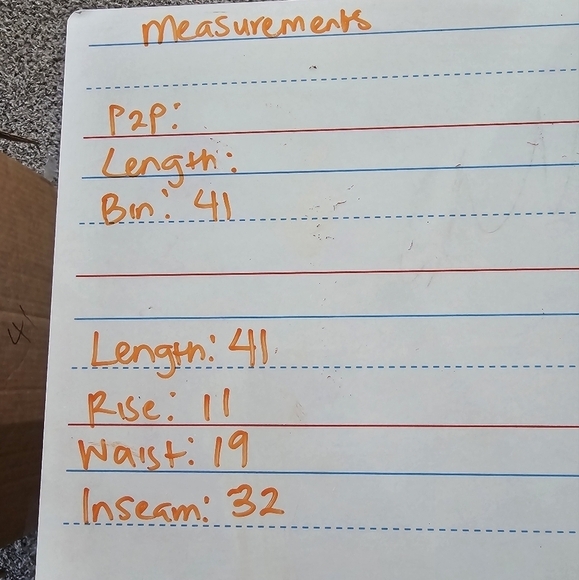 Measurements
P2P:
Length:
Bin: 41
Length: 41
Rise: 11
Waist: 19
Inseam: 32
41